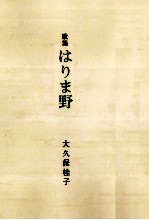 歌集
はりま野
大久保桂子